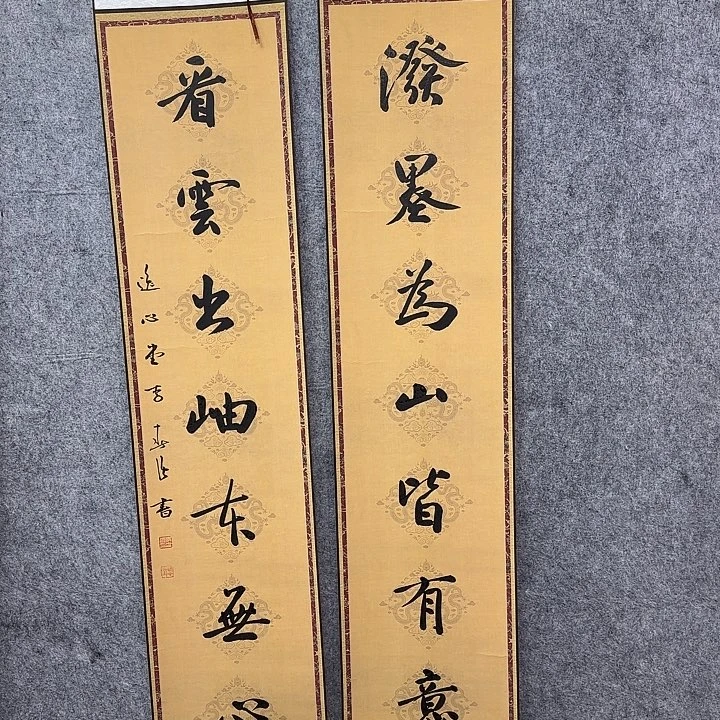 潑墨為山皆有意
看雲出岫本無心
心堂李書